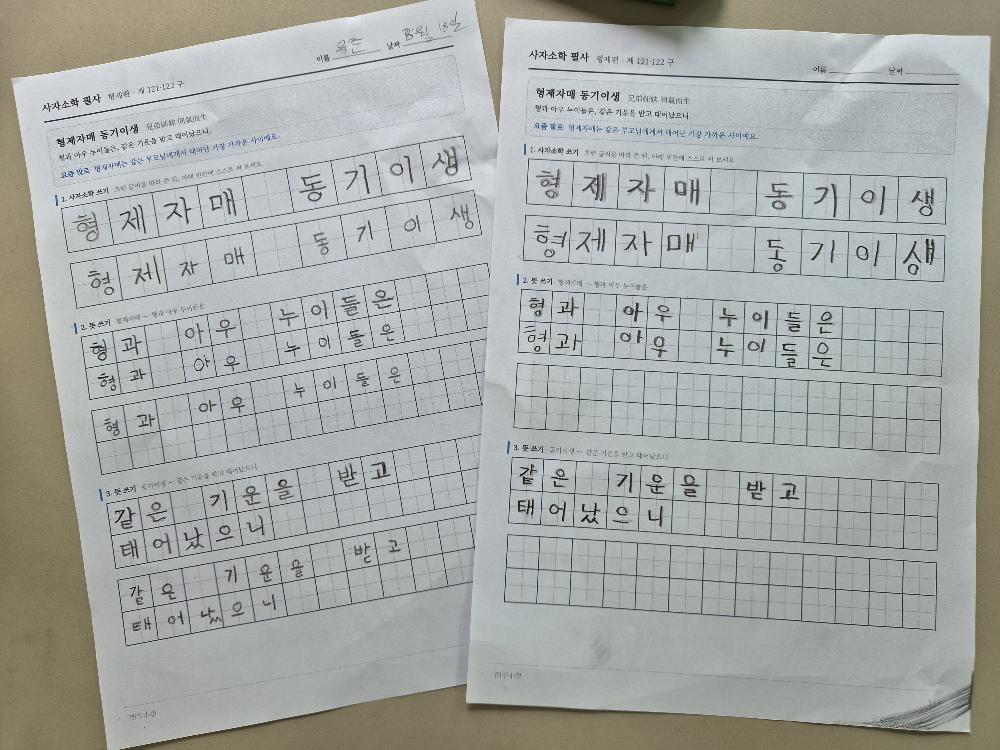 사자소학 필사 형제편 · 제 121·122 구
이름 날짜 8월 18일
형제자매 동기이생 兄弟姉妹 同氣而生
형과 아우 누이들은, 같은 기운을 받고 태어났으니.
요즘 말로 형제자매는 같은 부모님에게서 태어난 가장 가까운 사이예요.
1. 사자소학 쓰기 흐린 글씨를 따라 쓴 뒤, 아래 빈칸에 스스로 써 보세요
형제자매 동기이생
형제자매 동기이생
2. 뜻 쓰기 형제자매 — 형과 아우 누이들은
형과 아우 누이들은
형과 아우 누이들은
형과 아우 누이들은
3. 뜻 쓰기 동기이생 — 같은 기운을 받고 태어났으니
같은 기운을 받고
태어났으니
같은 기운을 받고
태어났으니
四字小學
사자소학 필사 형제편 · 제 121·122 구
이름 날짜
형제자매 동기이생 兄弟姉妹 同氣而生
형과 아우 누이들은, 같은 기운을 받고 태어났으니.
요즘 말로 형제자매는 같은 부모님에게서 태어난 가장 가까운 사이예요.
1. 사자소학 쓰기 흐린 글씨를 따라 쓴 뒤, 아래 빈칸에 스스로 써 보세요
형제자매 동기이생
형제자매 동기이생
2. 뜻 쓰기 형제자매 — 형과 아우 누이들은
형과 아우 누이들은
형과 아우 누이들은
3. 뜻 쓰기 동기이생 — 같은 기운을 받고 태어났으니
같은 기운을 받고
태어났으니
四字小學